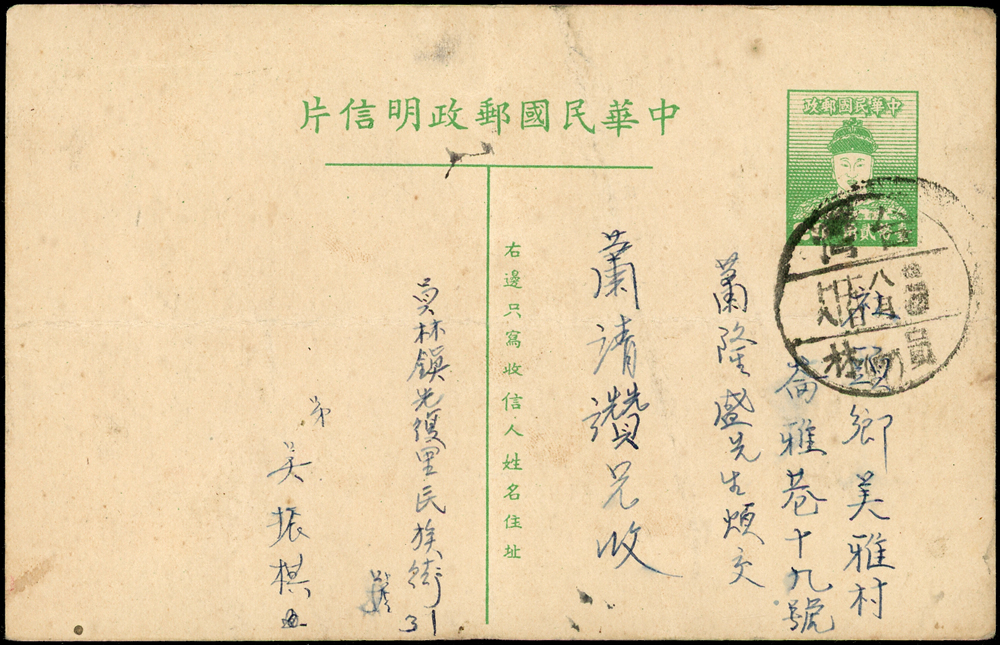 中華民國郵政明信片
中華民國郵政
社頭鄉美雅村
崙雅巷十九號
蕭隆盛先生煩交
蕭清讚兄收
右邊只寫收信人姓名住址
員林鎮光復里民族街
31
弟
吳振棋